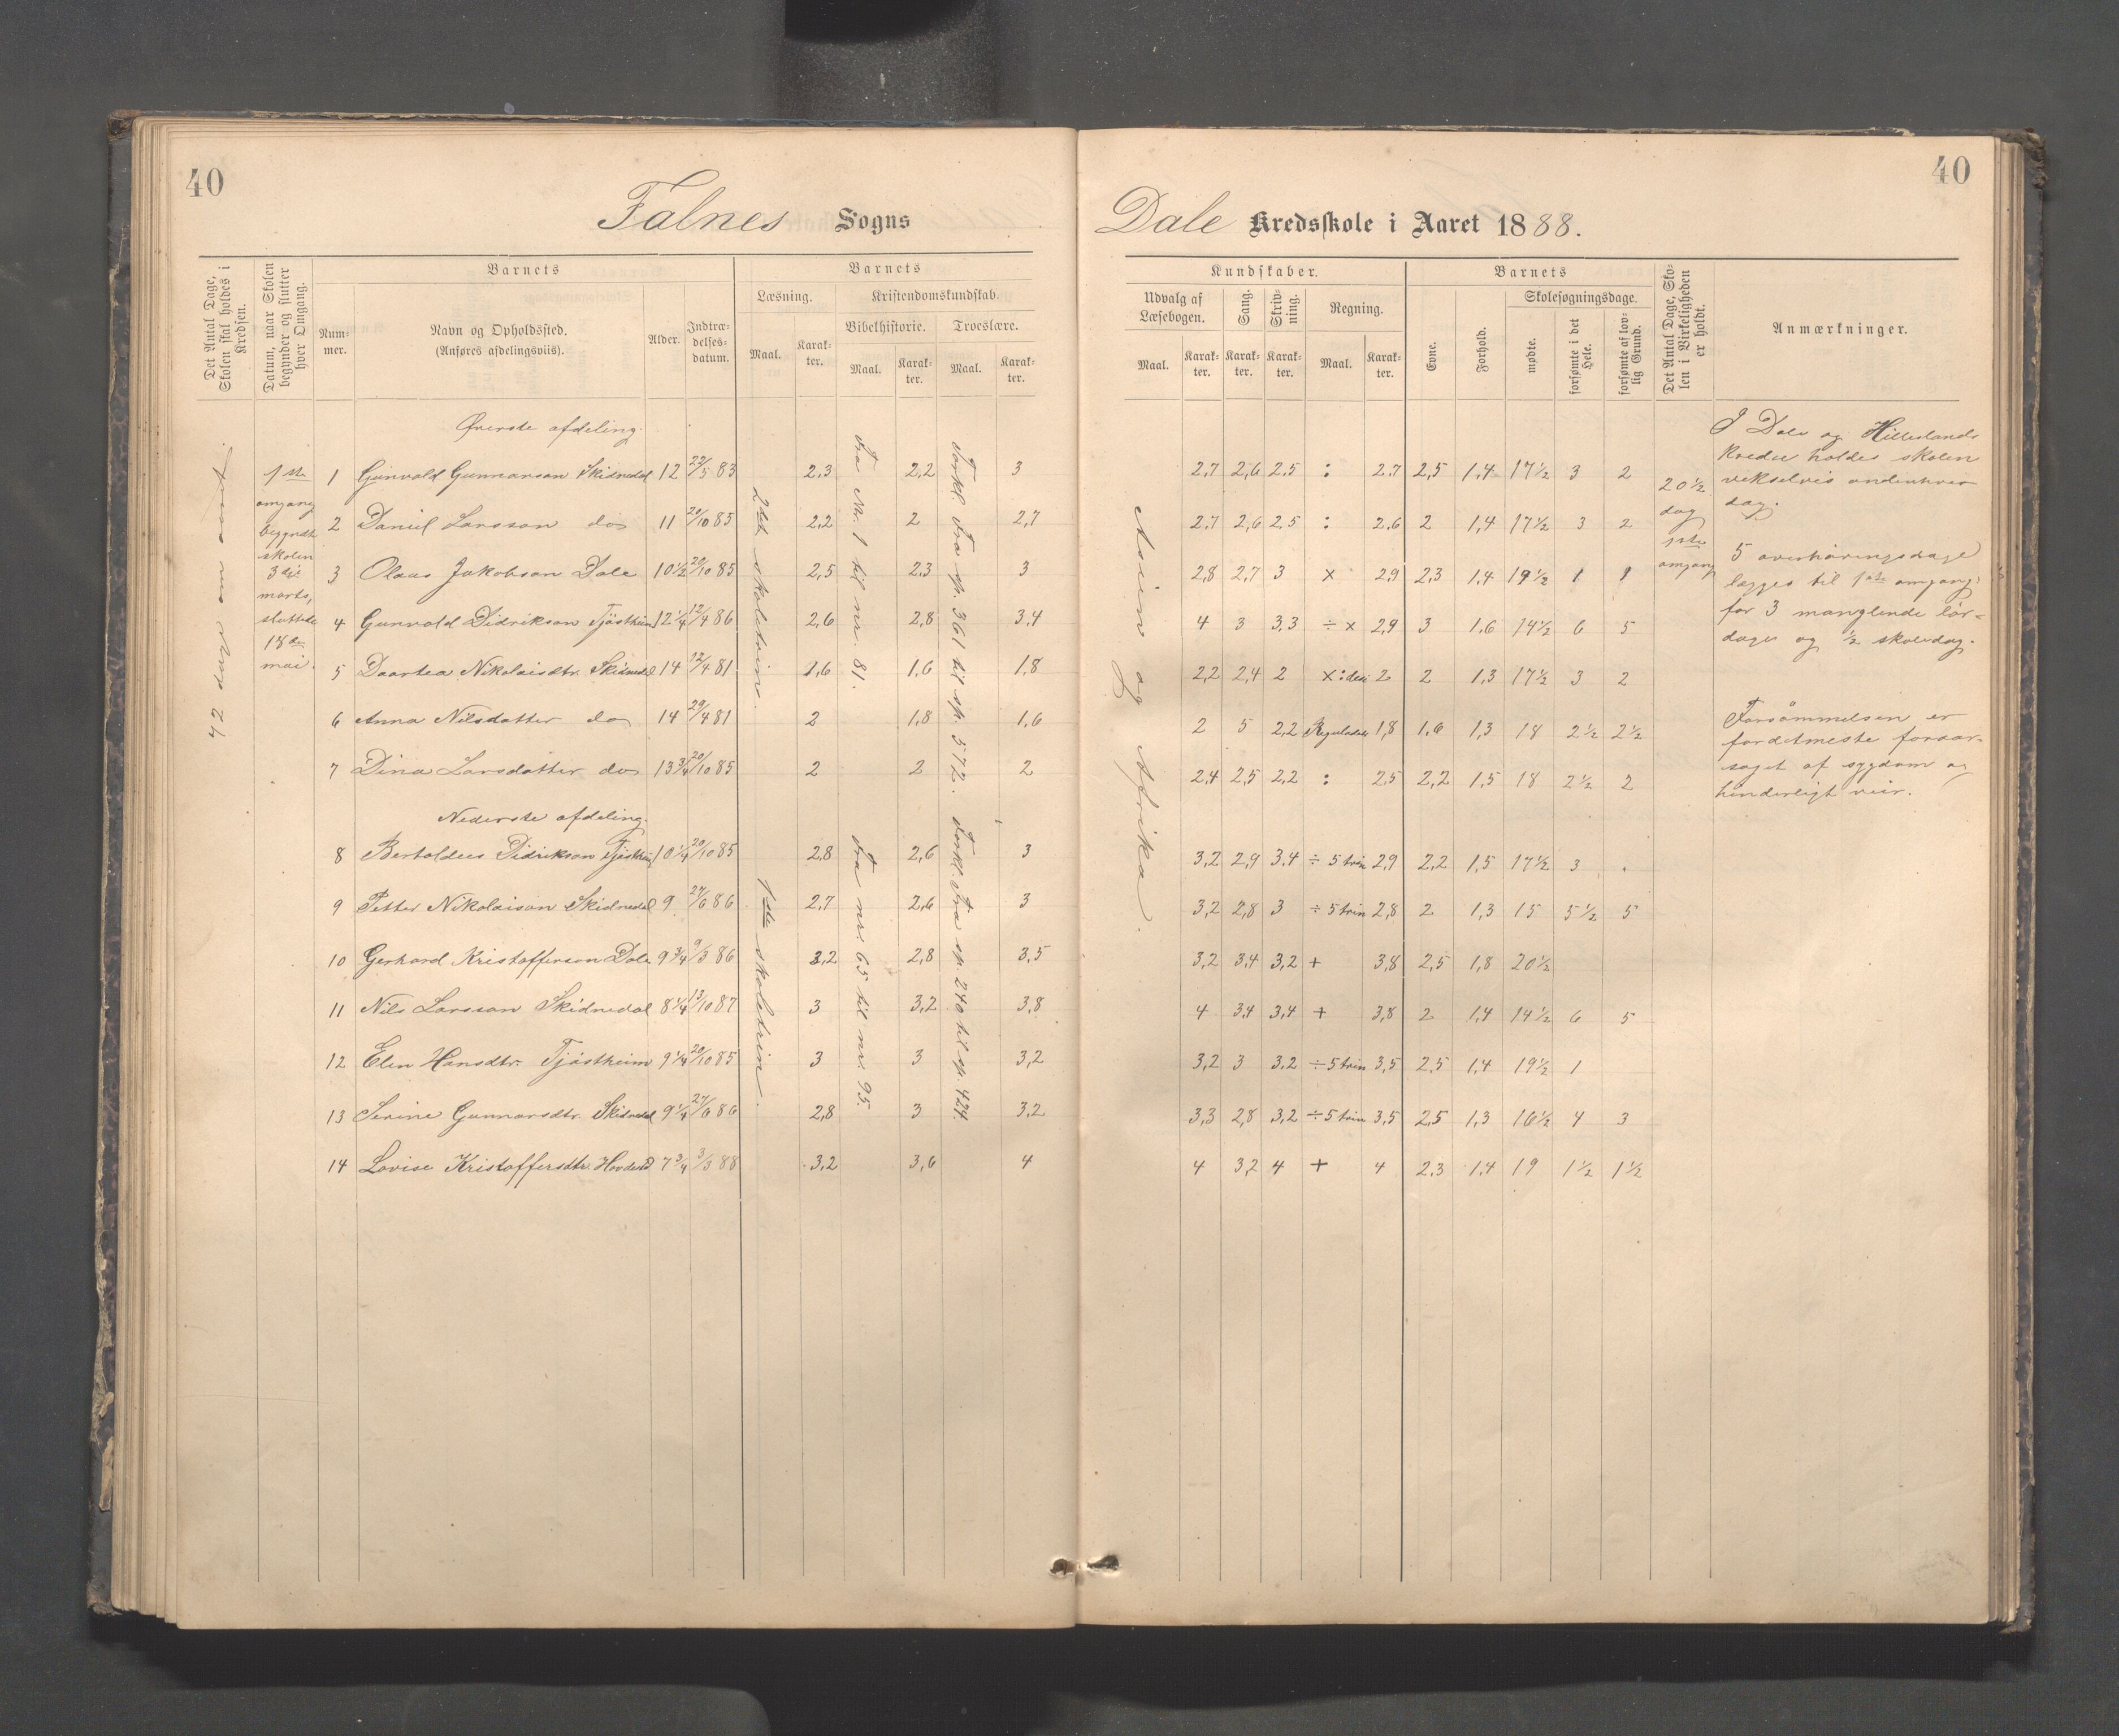 40
Falnes Sogns
Det Antal Dage, Skolen skal holdes i Kredsen.
Datum, naar Skolen begynder og slutter hver Omgang.
Barnets
Num-mer.
Navn og Opholdssted.
(Anføres afdelingsviis).
Alder.
Indtræ-delses-datum.
Barnets
Læsning.
Kristendomskundskab.
Bibelhistorie.
Troeslære.
Maal.
Karak-ter.
Maal.
Karak-ter.
Maal.
Karak-ter.
42 dage om aaret.
1ste
omgang
begyndte
skolen
3die
marts,
sluttede
18de
mai.
Øverste afdeling.
1 Gunvald Gunnarson Skidnedal 12 22/3 83 2,3 2,2 3
2 Daniel Larsson do 11 20/10 85 2,2 2 2,7
3 Olaus Jakobson Dale 10½ 20/10 85 2,5 2,3 3
4 Gunvald Didrikson Tjøstheim 12¼ 12/4 86 2,6 2,8 3,4
5 Daartea Nikolaisdtr. Skidnedal 14 12/4 81 1,6 1,6 1,8
6 Anna Nilsdatter do 14 29/4 81 2 1,8 1,6
7 Dina Larsdatter do 13¾ 20/10 85 2 2 2
2det skoletrin.
Fra Nr. 1 til nr. 81.
Forkl. Fra sp. 361 til sp. 572.
Nederste afdeling.
8 Bertoldeus Didrikson Tjøstheim 10¼ 20/10 85 2,8 2,6 3
9 Petter Nikolaison Skidnedal 9 27/6 86 2,7 2,6 3
10 Gerhard Kristofferson Dale 9¾ 9/3 86 3,2 2,8 3,5
11 Nils Larsson Skidnedal 8¼ 13/10 87 3 3,2 3,8
12 Elen Hansdtr. Tjøstheim 9¼ 20/10 85 3 3 3,2
13 Serine Gunnarsdtr. Skidnedal 9¼ 27/6 86 2,8 3 3,2
14 Lovise Kristoffersdtr. 7¾ 3/3 88 3,2 3,6 4
1ste skoletrin.
Fra nr. 65 til nr. 95.
Forkl. Fra sp. 240 til sp. 424.
40
Dale Kredsskole i Aaret 1888.
Kundskaber.
Udvalg af Læsebogen.
Sang.
Skriv-ning.
Regning.
Maal.
Karak-ter.
Karak-ter.
Karak-ter.
Maal.
Karak-ter.
Barnets
Evne.
Forhold.
Skolesøgningsdage.
mødte.
forsømte i det Hele.
forsømte af lov-lig Grund.
Det Antal Dage, Sko-len i Virkeligheden er holdt.
Anmærkninger.
Asien og Afrika.
2,7 2,6 2,5 : 2,7 2,5 1,4 17½ 3 2
2,7 2,6 2,5 : 2,6 2 1,4 17½ 3 2
2,8 2,7 3 x 2,9 2,3 1,4 19½ 1 1
4 3 3,3 ÷ x 2,9 3 1,6 14½ 6 5
2,2 2,4 2 x : 2 2 1,3 17½ 3 2
2 5 2,2 1,8 1,6 1,3 18 2½ 2½
2,4 2,5 2,2 : 2,5 2,2 1,5 18 2½ 2
3,2 2,9 3,4 ÷ 5 trin 2,9 2,2 1,5 17½ 3 .
3,2 2,8 3 ÷ 5 trin 2,8 2 1,3 15 5½ 5
3,2 3,4 3,2 + 3,8 2,5 1,8 20½
4 3,4 3,4 + 3,8 2 1,4 14½ 6 5
3,2 3 3,2 ÷ 5 trin 3,5 2,5 1,4 19½ 1
3,3 2,8 3,2 ÷ 5 trin 3,5 2,5 1,3 16½ 4 3
4 3,2 4 + 4 2,3 1,4 19 1½ 1½
20½
dag
1ste
omgang
I Dale og Hillelands
kredse holdes skolen
vekselvis andenhver
dag.
5 overhøringsdage
lægges til 1ste omgang
for 3 manglende lör-
dage og ½ skoledag.
Forsømmelsen er
fordetmeste foraar-
saget af sygdom og
hinderligt veir.